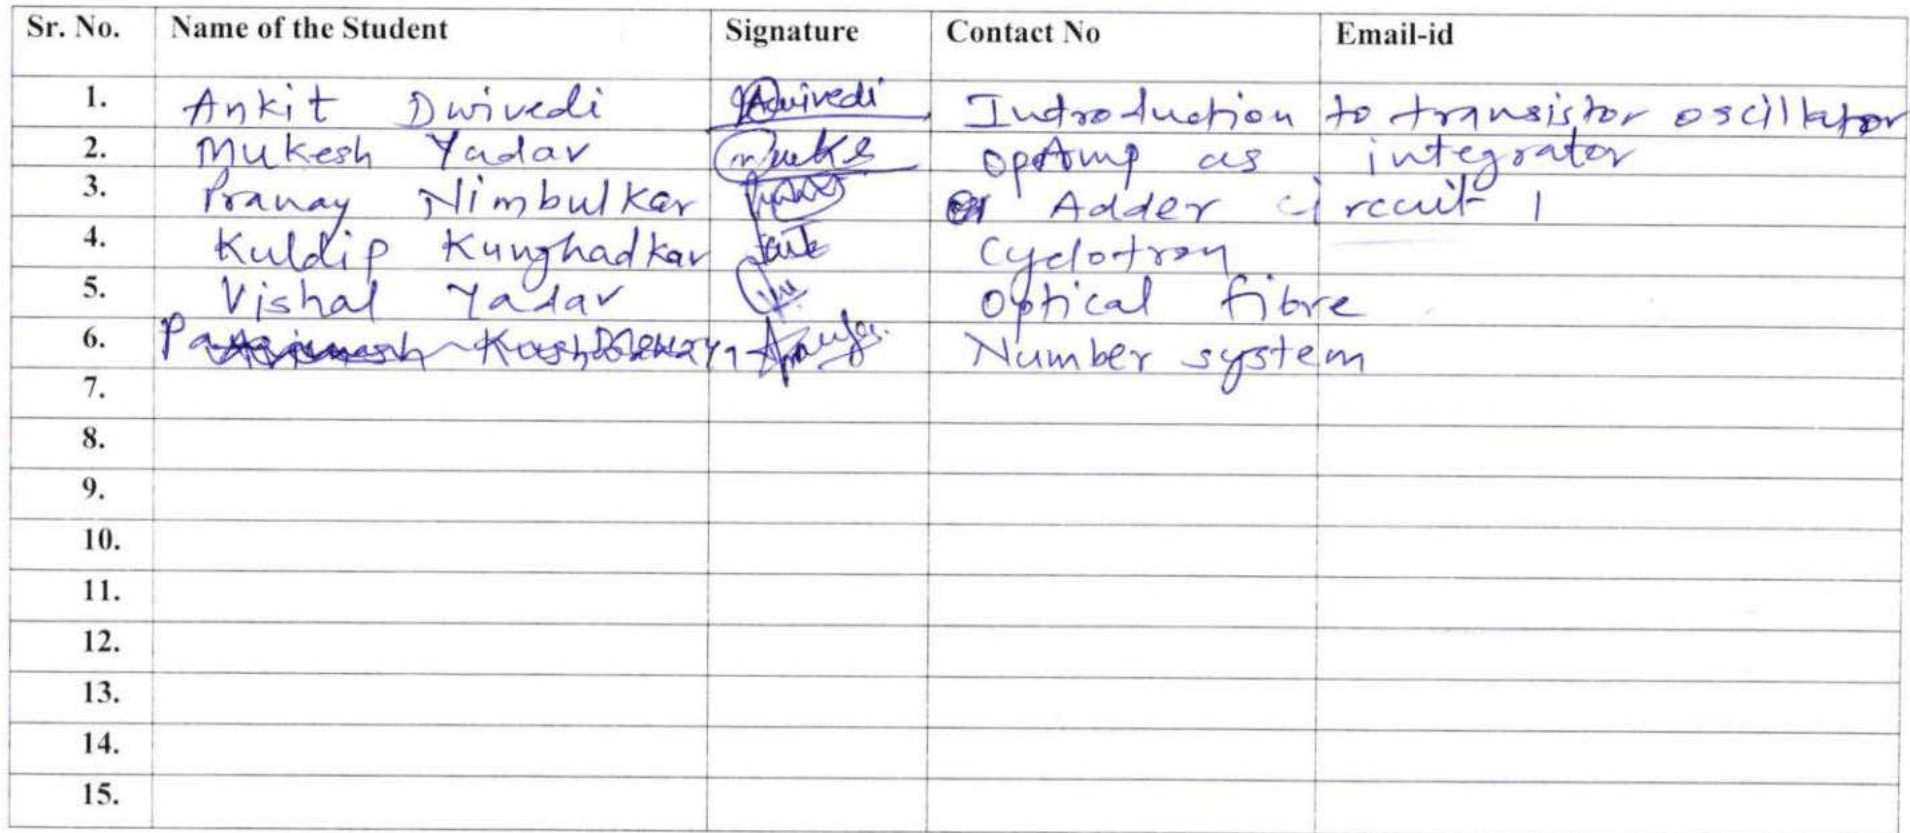 Sr. No. Name of the Student Signature Contact No Email-id
1. Ankit Dwivedi Dwivedi Introduction to transistor oscillator
2. Mukesh Yadav OpAmp as integrator
3. Pranay Nimbulkar Adder circuit 1
4. Kuldip Kunghadkar Cyclotron
5. Vishal Yadav Optical fibre
6. Number system
7.
8.
9.
10.
11.
12.
13.
14.
15.